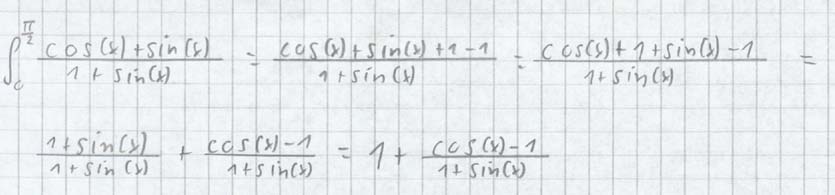 ∫₀^{π/2} (cos(x)+sin(x))/(1+sin(x)) = (cos(x)+sin(x)+1-1)/(1+sin(x)) = (cos(x)+1+sin(x)-1)/(1+sin(x)) =
(1+sin(x))/(1+sin(x)) + (cos(x)-1)/(1+sin(x)) = 1 + (cos(x)-1)/(1+sin(x))